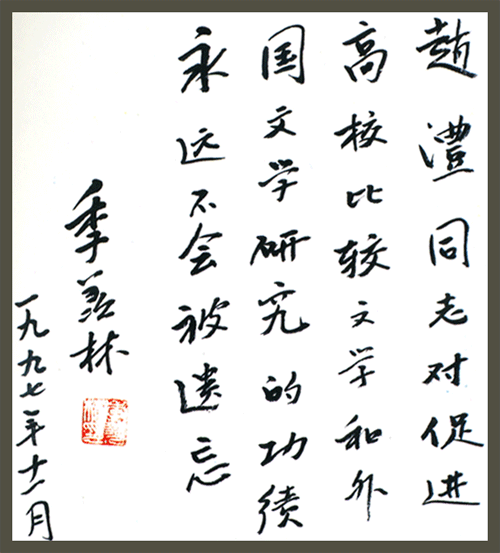 趙澧同志对促进
高校比较文学和外
国文学研究的功绩
永远不会被遗忘
季羡林
一九九七年十一月